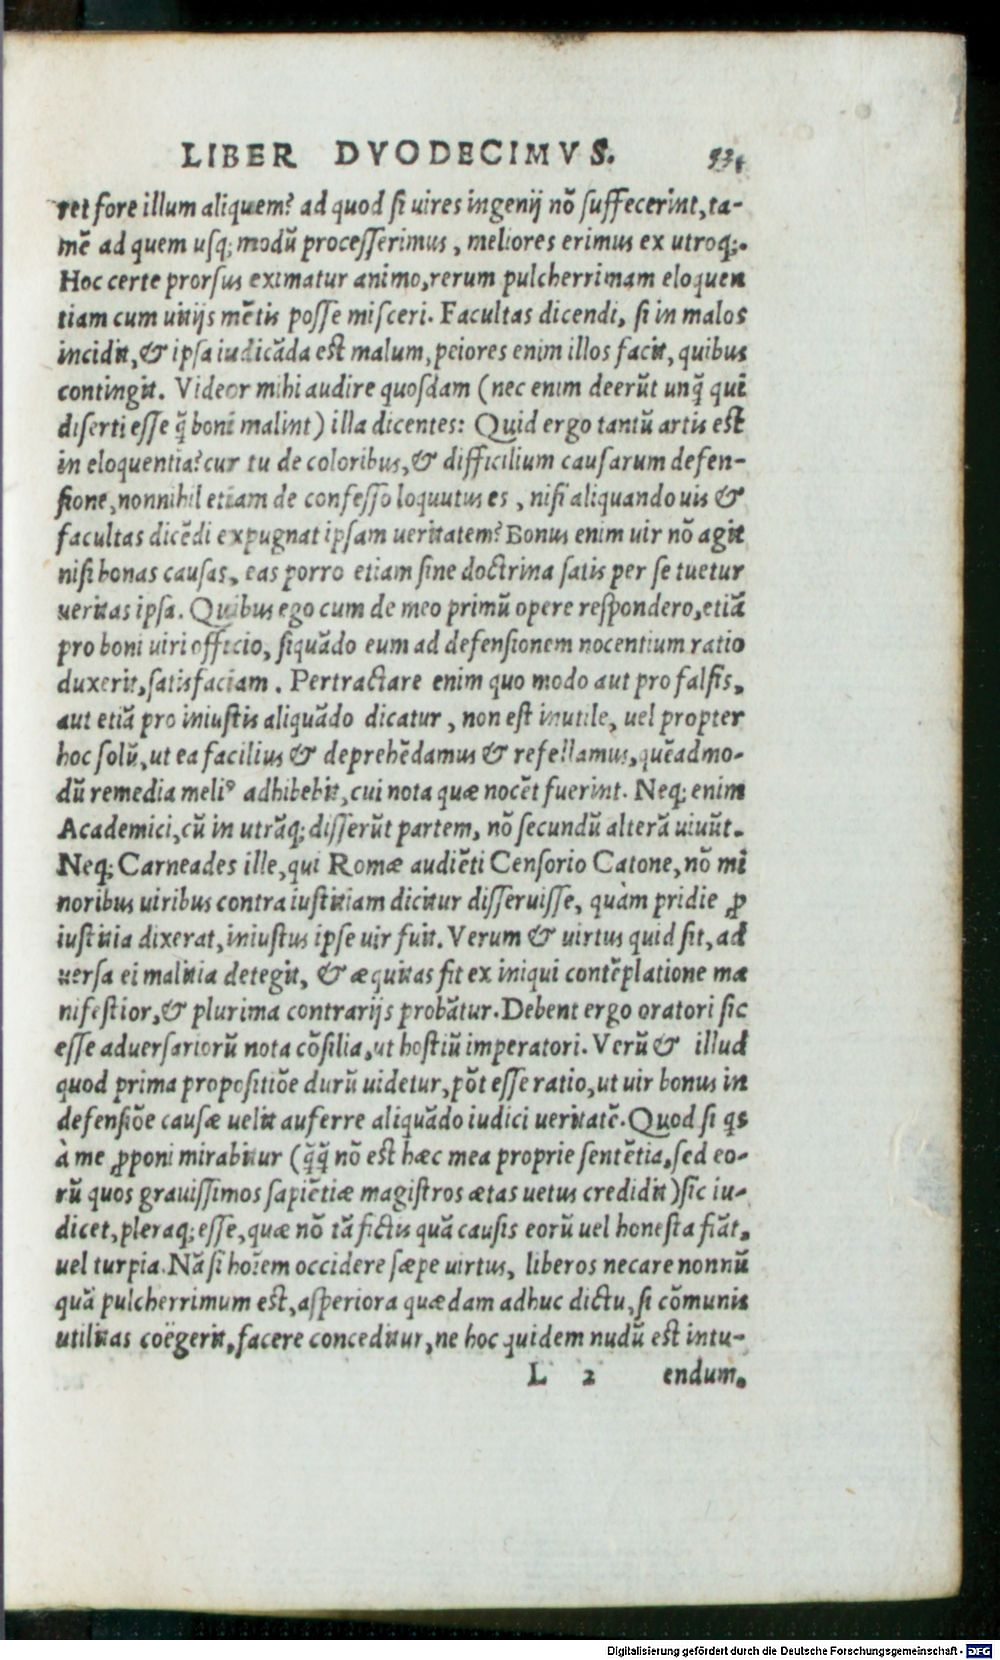 LIBER DVODECIMVS.
ret fore illum aliquem? ad quod si uires ingenij nõ suffecerint, ta-
mẽ ad quem usq; modũ processerimus, meliores erimus ex utroq;.
Hoc certe prorsus eximatur animo, rerum pulcherrimam eloquen
tiam cum uitijs mẽtis posse misceri. Facultas dicendi, si in malos
incidit, & ipsa iudicãda est malum, peiores enim illos facit, quibus
contingit. Videor mihi audire quosdam (nec enim deerũt unq̃ qui
diserti esse q̃ boni malint) illa dicentes: Quid ergo tantũ artis est
in eloquentia? cur tu de coloribus, & difficilium causarum defen-
sione, nonnihil etiam de confesso loquutus es, nisi aliquando uis &
facultas dicẽdi expugnat ipsam ueritatem? Bonus enim uir nõ agit
nisi bonas causas, eas porro etiam sine doctrina satis per se tuetur
ueritas ipsa. Quibus ego cum de meo primũ opere respondero, etiã
pro boni uiri officio, siquãdo eum ad defensionem nocentium ratio
duxerit, satisfaciam. Pertractare enim quo modo aut pro falsis,
aut etiã pro iniustis aliquãdo dicatur, non est inutile, uel propter
hoc solũ, ut ea facilius & deprehẽdamus & refellamus, quẽadmo-
dũ remedia meliꝰ adhibebit, cui nota quæ nocẽt fuerint. Neq; enim
Academici, cũ in utrãq; disserũt partem, nõ secundũ alterã uiuũt.
Neq; Carneades ille, qui Romæ audiẽti Censorio Catone, nõ mi
noribus uiribus contra iustitiam dicitur disseruisse, quàm pridie ꝓ
iustitia dixerat, iniustus ipse uir fuit. Verum & uirtus quid sit, ad
uersa ei malitia detegit, & æquitas fit ex iniqui contẽplatione ma
nifestior, & plurima contrarijs probãtur. Debent ergo oratori sic
esse aduersariorũ nota cõsilia, ut hostiũ imperatori. Verũ & illud
quod prima propositiõe durũ uidetur, põt esse ratio, ut uir bonus in
defensiõe causæ uelit auferre aliquãdo iudici ueritatẽ. Quod si qs
à me ꝓponi mirabitur (q̃q̃ nõ est hæc mea proprie sentẽtia, sed eo-
rũ quos grauissimos sapiẽtiæ magistros ætas uetus credidit) sic iu-
dicet, pleraq; esse, quæ nõ tã factis quã causis eorũ uel honesta fiãt,
uel turpia. Nã si hoĩem occidere sæpe uirtus, liberos necare nonnũ
quã pulcherrimum est, asperiora quædam adhuc dictu, si cõmunis
utilitas coëgerit, facere conceditur, ne hoc quidem nudũ est intu-
L 2 endum.
Digitalisierung gefördert durch die Deutsche Forschungsgemeinschaft - DFG